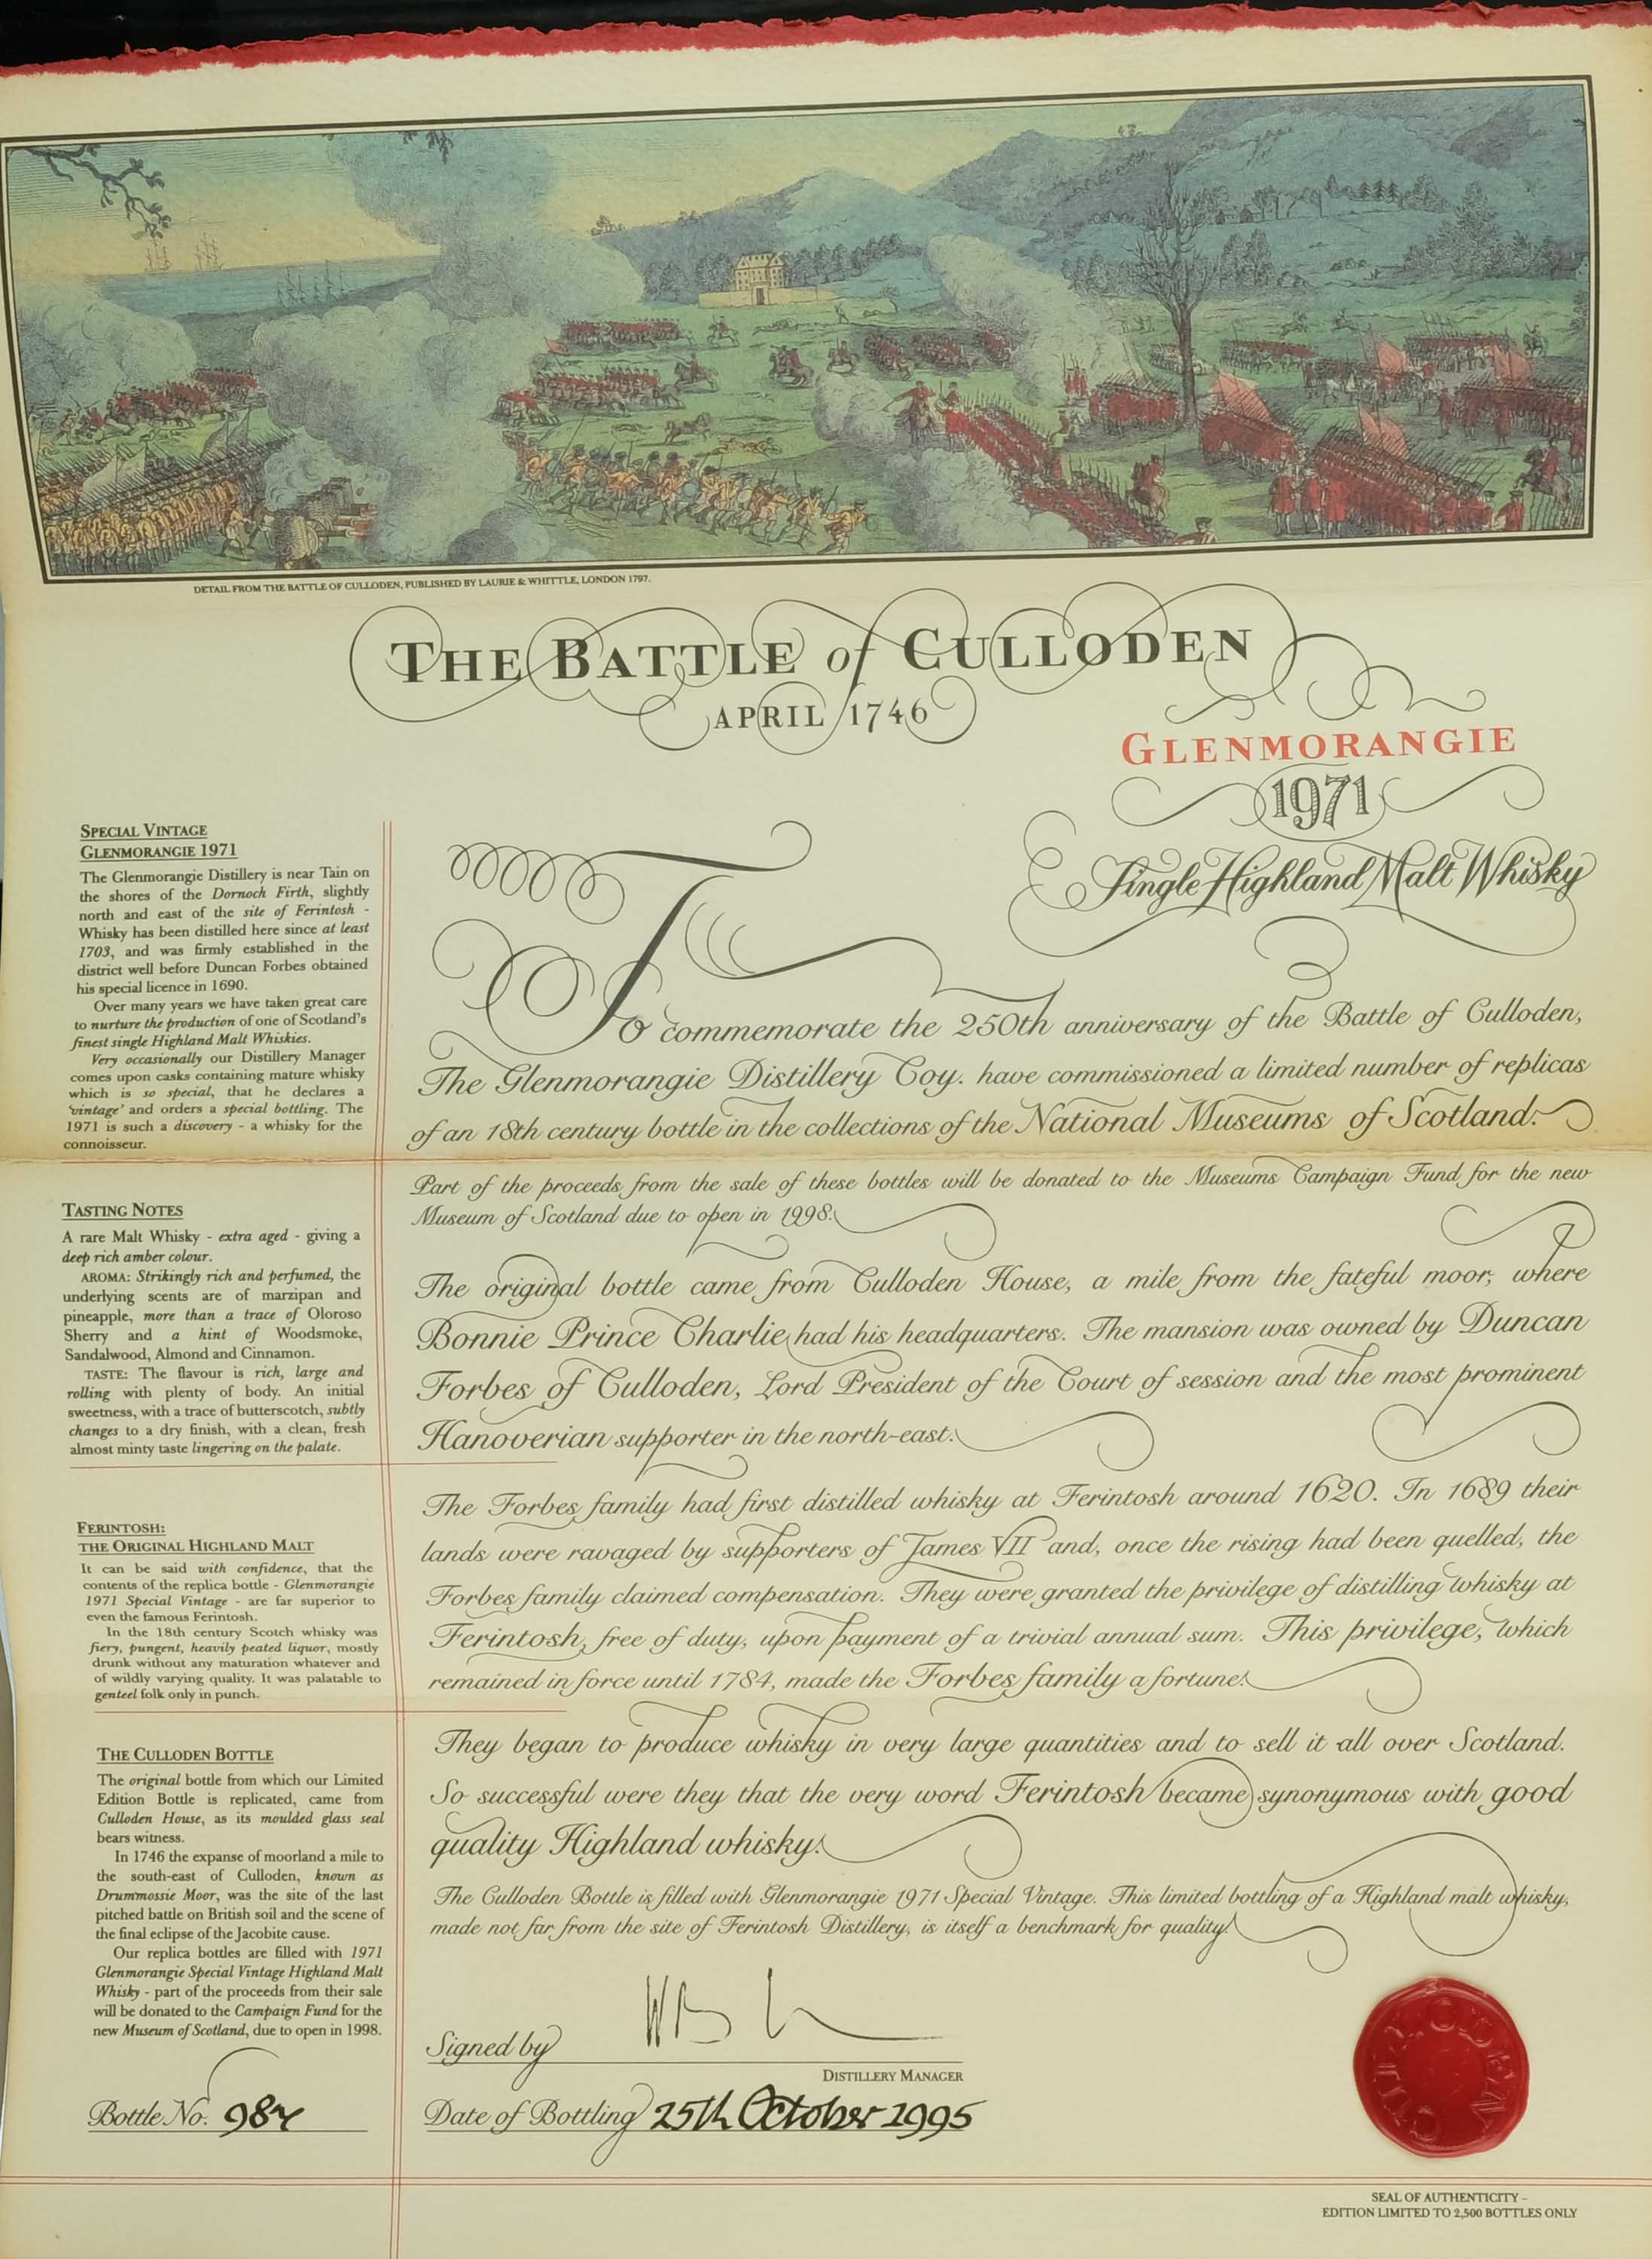 DETAIL FROM THE BATTLE OF CULLODEN, PUBLISHED BY LAURIE & WHITTLE, LONDON 1797.
THE BATTLE of CULLODEN
APRIL 1746
GLENMORANGIE
1971
Single Highland Malt Whisky
SPECIAL VINTAGE
GLENMORANGIE 1971
The Glenmorangie Distillery is near Tain on
the shores of the Dornoch Firth, slightly
north and east of the site of Ferintosh -
Whisky has been distilled here since at least
1703, and was firmly established in the
district well before Duncan Forbes obtained
his special licence in 1690.
Over many years we have taken great care
to nurture the production of one of Scotland's
finest single Highland Malt Whiskies.
Very occasionally our Distillery Manager
comes upon casks containing mature whisky
which is so special, that he declares a
'vintage' and orders a special bottling. The
1971 is such a discovery - a whisky for the
connoisseur.
TASTING NOTES
A rare Malt Whisky - extra aged - giving a
deep rich amber colour.
AROMA: Strikingly rich and perfumed, the
underlying scents are of marzipan and
pineapple, more than a trace of Oloroso
Sherry and a hint of Woodsmoke,
Sandalwood, Almond and Cinnamon.
TASTE: The flavour is rich, large and
rolling with plenty of body. An initial
sweetness, with a trace of butterscotch, subtly
changes to a dry finish, with a clean, fresh
almost minty taste lingering on the palate.
FERINTOSH:
THE ORIGINAL HIGHLAND MALT
It can be said with confidence, that the
contents of the replica bottle - Glenmorangie
1971 Special Vintage - are far superior to
even the famous Ferintosh.
In the 18th century Scotch whisky was
fiery, pungent, heavily peated liquor, mostly
drunk without any maturation whatever and
of wildly varying quality. It was palatable to
genteel folk only in punch.
THE CULLODEN BOTTLE
The original bottle from which our Limited
Edition Bottle is replicated, came from
Culloden House, as its moulded glass seal
bears witness.
In 1746 the expanse of moorland a mile to
the south-east of Culloden, known as
Drummossie Moor, was the site of the last
pitched battle on British soil and the scene of
the final eclipse of the Jacobite cause.
Our replica bottles are filled with 1971
Glenmorangie Special Vintage Highland Malt
Whisky - part of the proceeds from their sale
will be donated to the Campaign Fund for the
new Museum of Scotland, due to open in 1998.
Bottle No. 984
To commemorate the 250th anniversary of the Battle of Culloden,
The Glenmorangie Distillery Coy. have commissioned a limited number of replicas
of an 18th century bottle in the collections of the National Museums of Scotland.
Part of the proceeds from the sale of these bottles will be donated to the Museums Campaign Fund for the new
Museum of Scotland due to open in 1998.
The original bottle came from Culloden House, a mile from the fateful moor, where
Bonnie Prince Charlie had his headquarters. The mansion was owned by Duncan
Forbes of Culloden, Lord President of the Court of session and the most prominent
Hanoverian supporter in the north-east.
The Forbes family had first distilled whisky at Ferintosh around 1620. In 1689 their
lands were ravaged by supporters of James VII and, once the rising had been quelled, the
Forbes family claimed compensation. They were granted the privilege of distilling whisky at
Ferintosh, free of duty, upon payment of a trivial annual sum. This privilege, which
remained in force until 1784, made the Forbes family a fortune.
They began to produce whisky in very large quantities and to sell it all over Scotland.
So successful were they that the very word Ferintosh became synonymous with good
quality Highland whisky.
The Culloden Bottle is filled with Glenmorangie 1971 Special Vintage. This limited bottling of a Highland malt whisky,
made not far from the site of Ferintosh Distillery, is itself a benchmark for quality.
Signed by
DISTILLERY MANAGER
Date of Bottling 25th October 1995
SEAL OF AUTHENTICITY -
EDITION LIMITED TO 2,500 BOTTLES ONLY